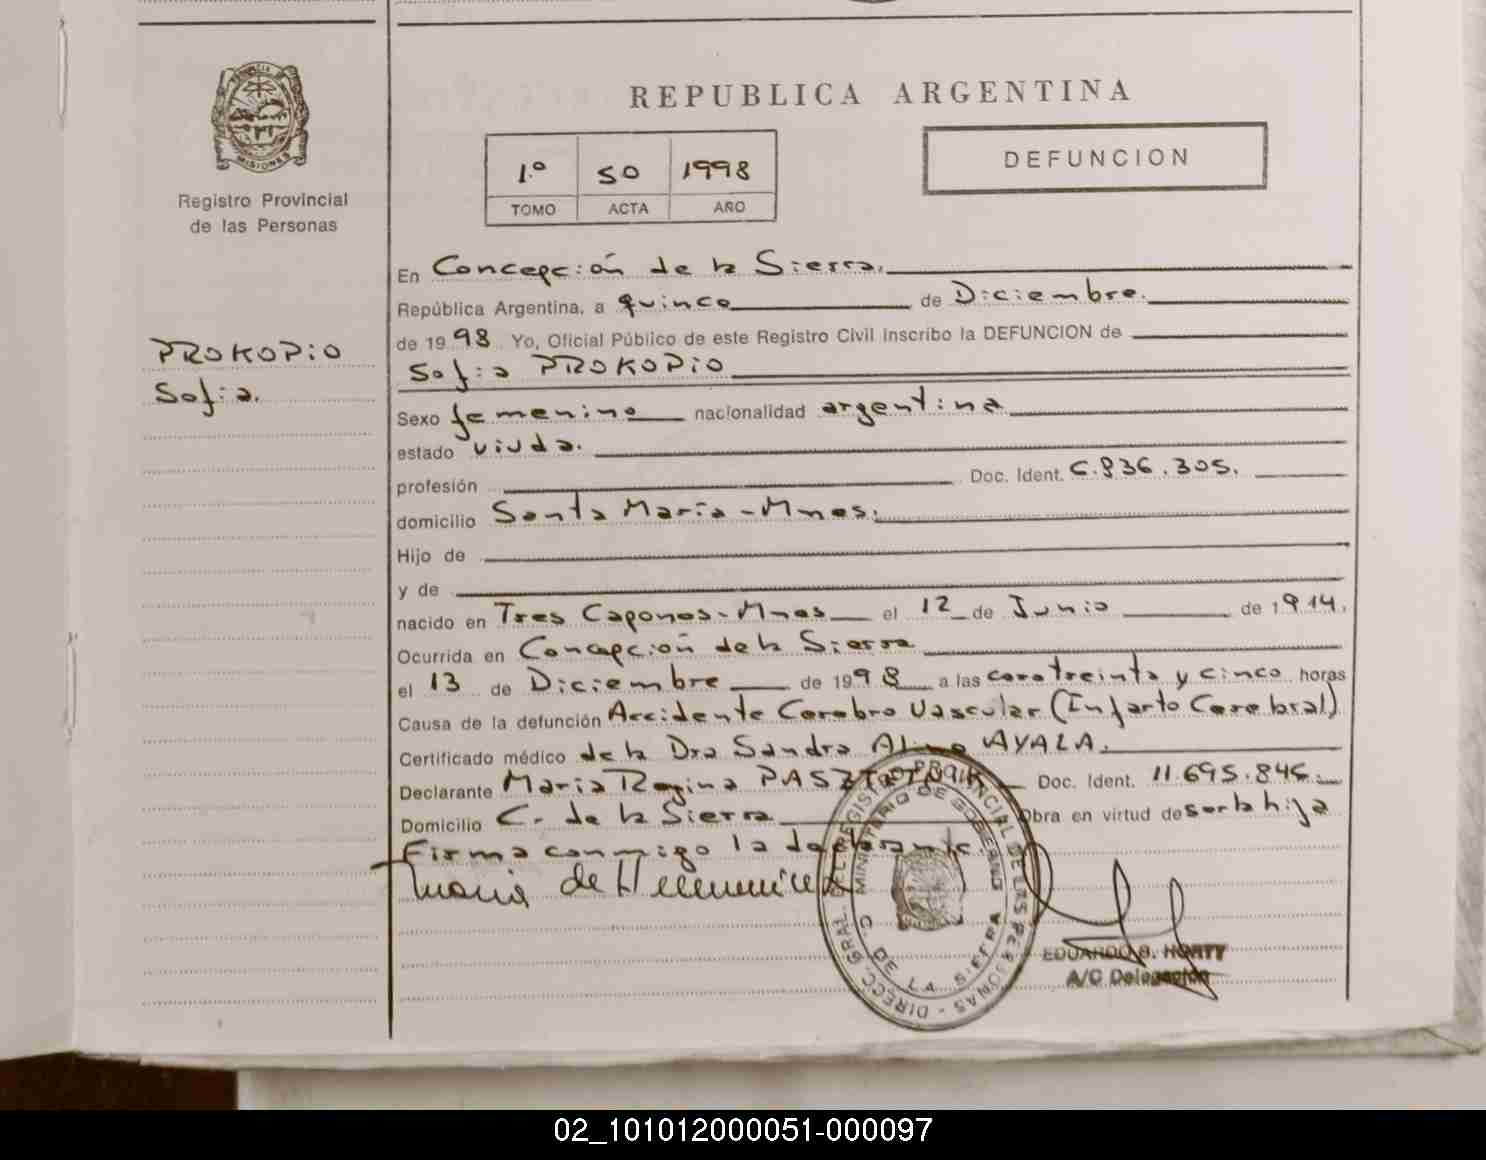 REPUBLICA ARGENTINA
PROVINCIA DE
MISIONES
Registro Provincial
de las Personas
1.º 50 1998
TOMO ACTA AÑO
DEFUNCION
PROKOPiO
Sofia.
En Concepción de la Sierra.
República Argentina, a quince de Diciembre.
de 1998 Yo, Oficial Público de este Registro Civil Inscribo la DEFUNCION de
Sofia PROKOPiO
Sexo femenino nacionalidad argentina
estado viuda.
profesión Doc. Ident. 6.836.305.
domicilio Santa María - Mnes.
Hijo de
y de
nacido en Tres Capones - Mnes el 12 de Junio de 1914.
Ocurrida en Concepción de la Sierra
el 13 de Diciembre de 1998 a las cero treinta y cinco horas
Causa de la defunción Accidente Cerebro Vascular (Infarto Cerebral)
Certificado médico de la Dra Sandra AYALA.
Declarante Maria Regina Doc. Ident. 11.695.846.
Domicilio C. de la Sierra Obra en virtud de ser la hija
Firma conmigo la declarante.
Maria de
DIRECC. GRAL. DEL REGISTRO PROVINCIAL DE LAS PERSONAS -
MINISTERIO DE GOBIERNO
C. DE LA SIERRA
EDUARDO B. HORTY
A/C Delegación
02_101012000051-000097